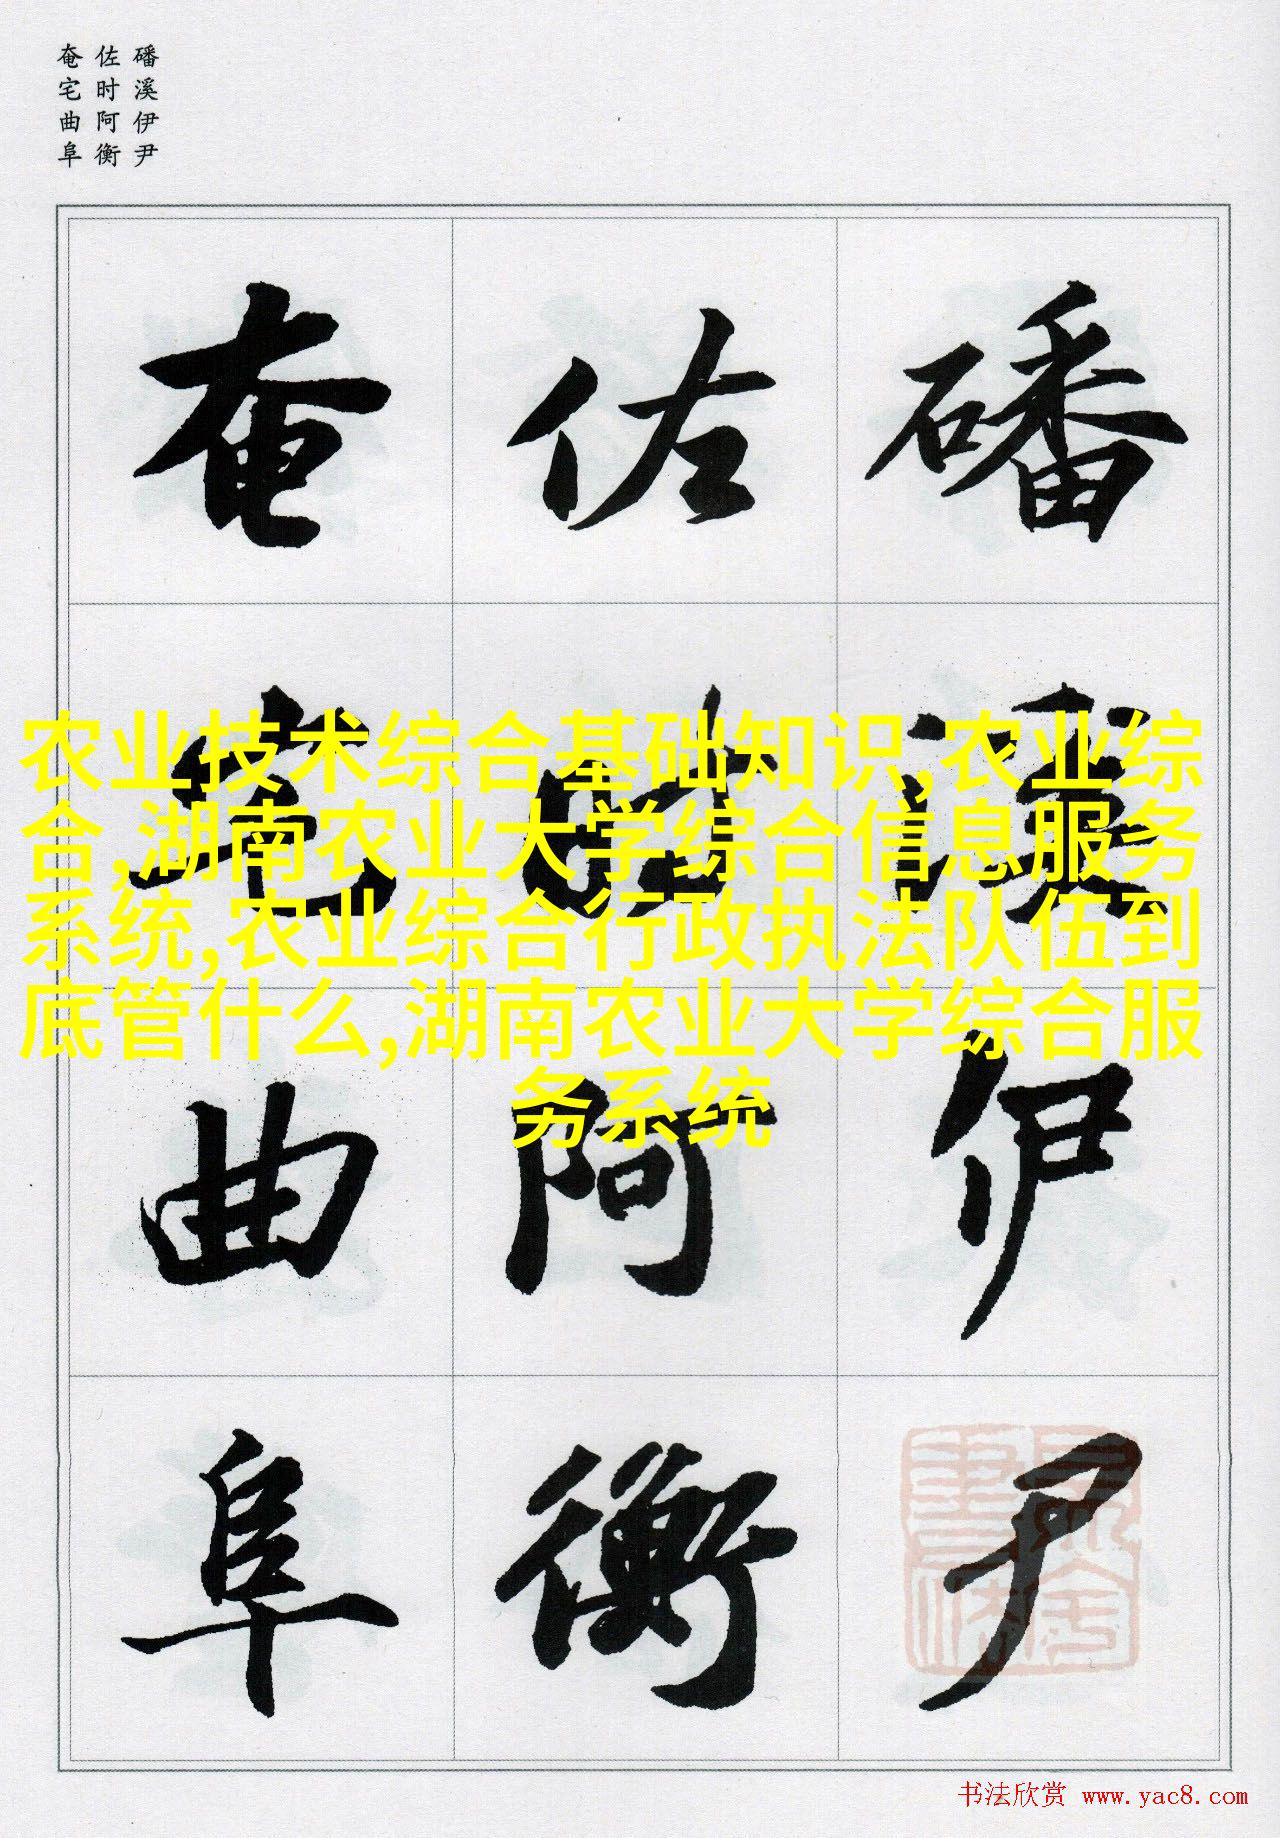 磻溪伊尹
佐时阿衡
奄宅曲阜
磻溪伊尹
佐时阿衡
奄宅曲阜
农业技术综合基础知识,农业综
合,湖南农业大学综合信息服务
系统,农业综合行政执法队伍到
底管什么,湖南农业大学综合服
务系统
书法欣赏 www.yac8.com